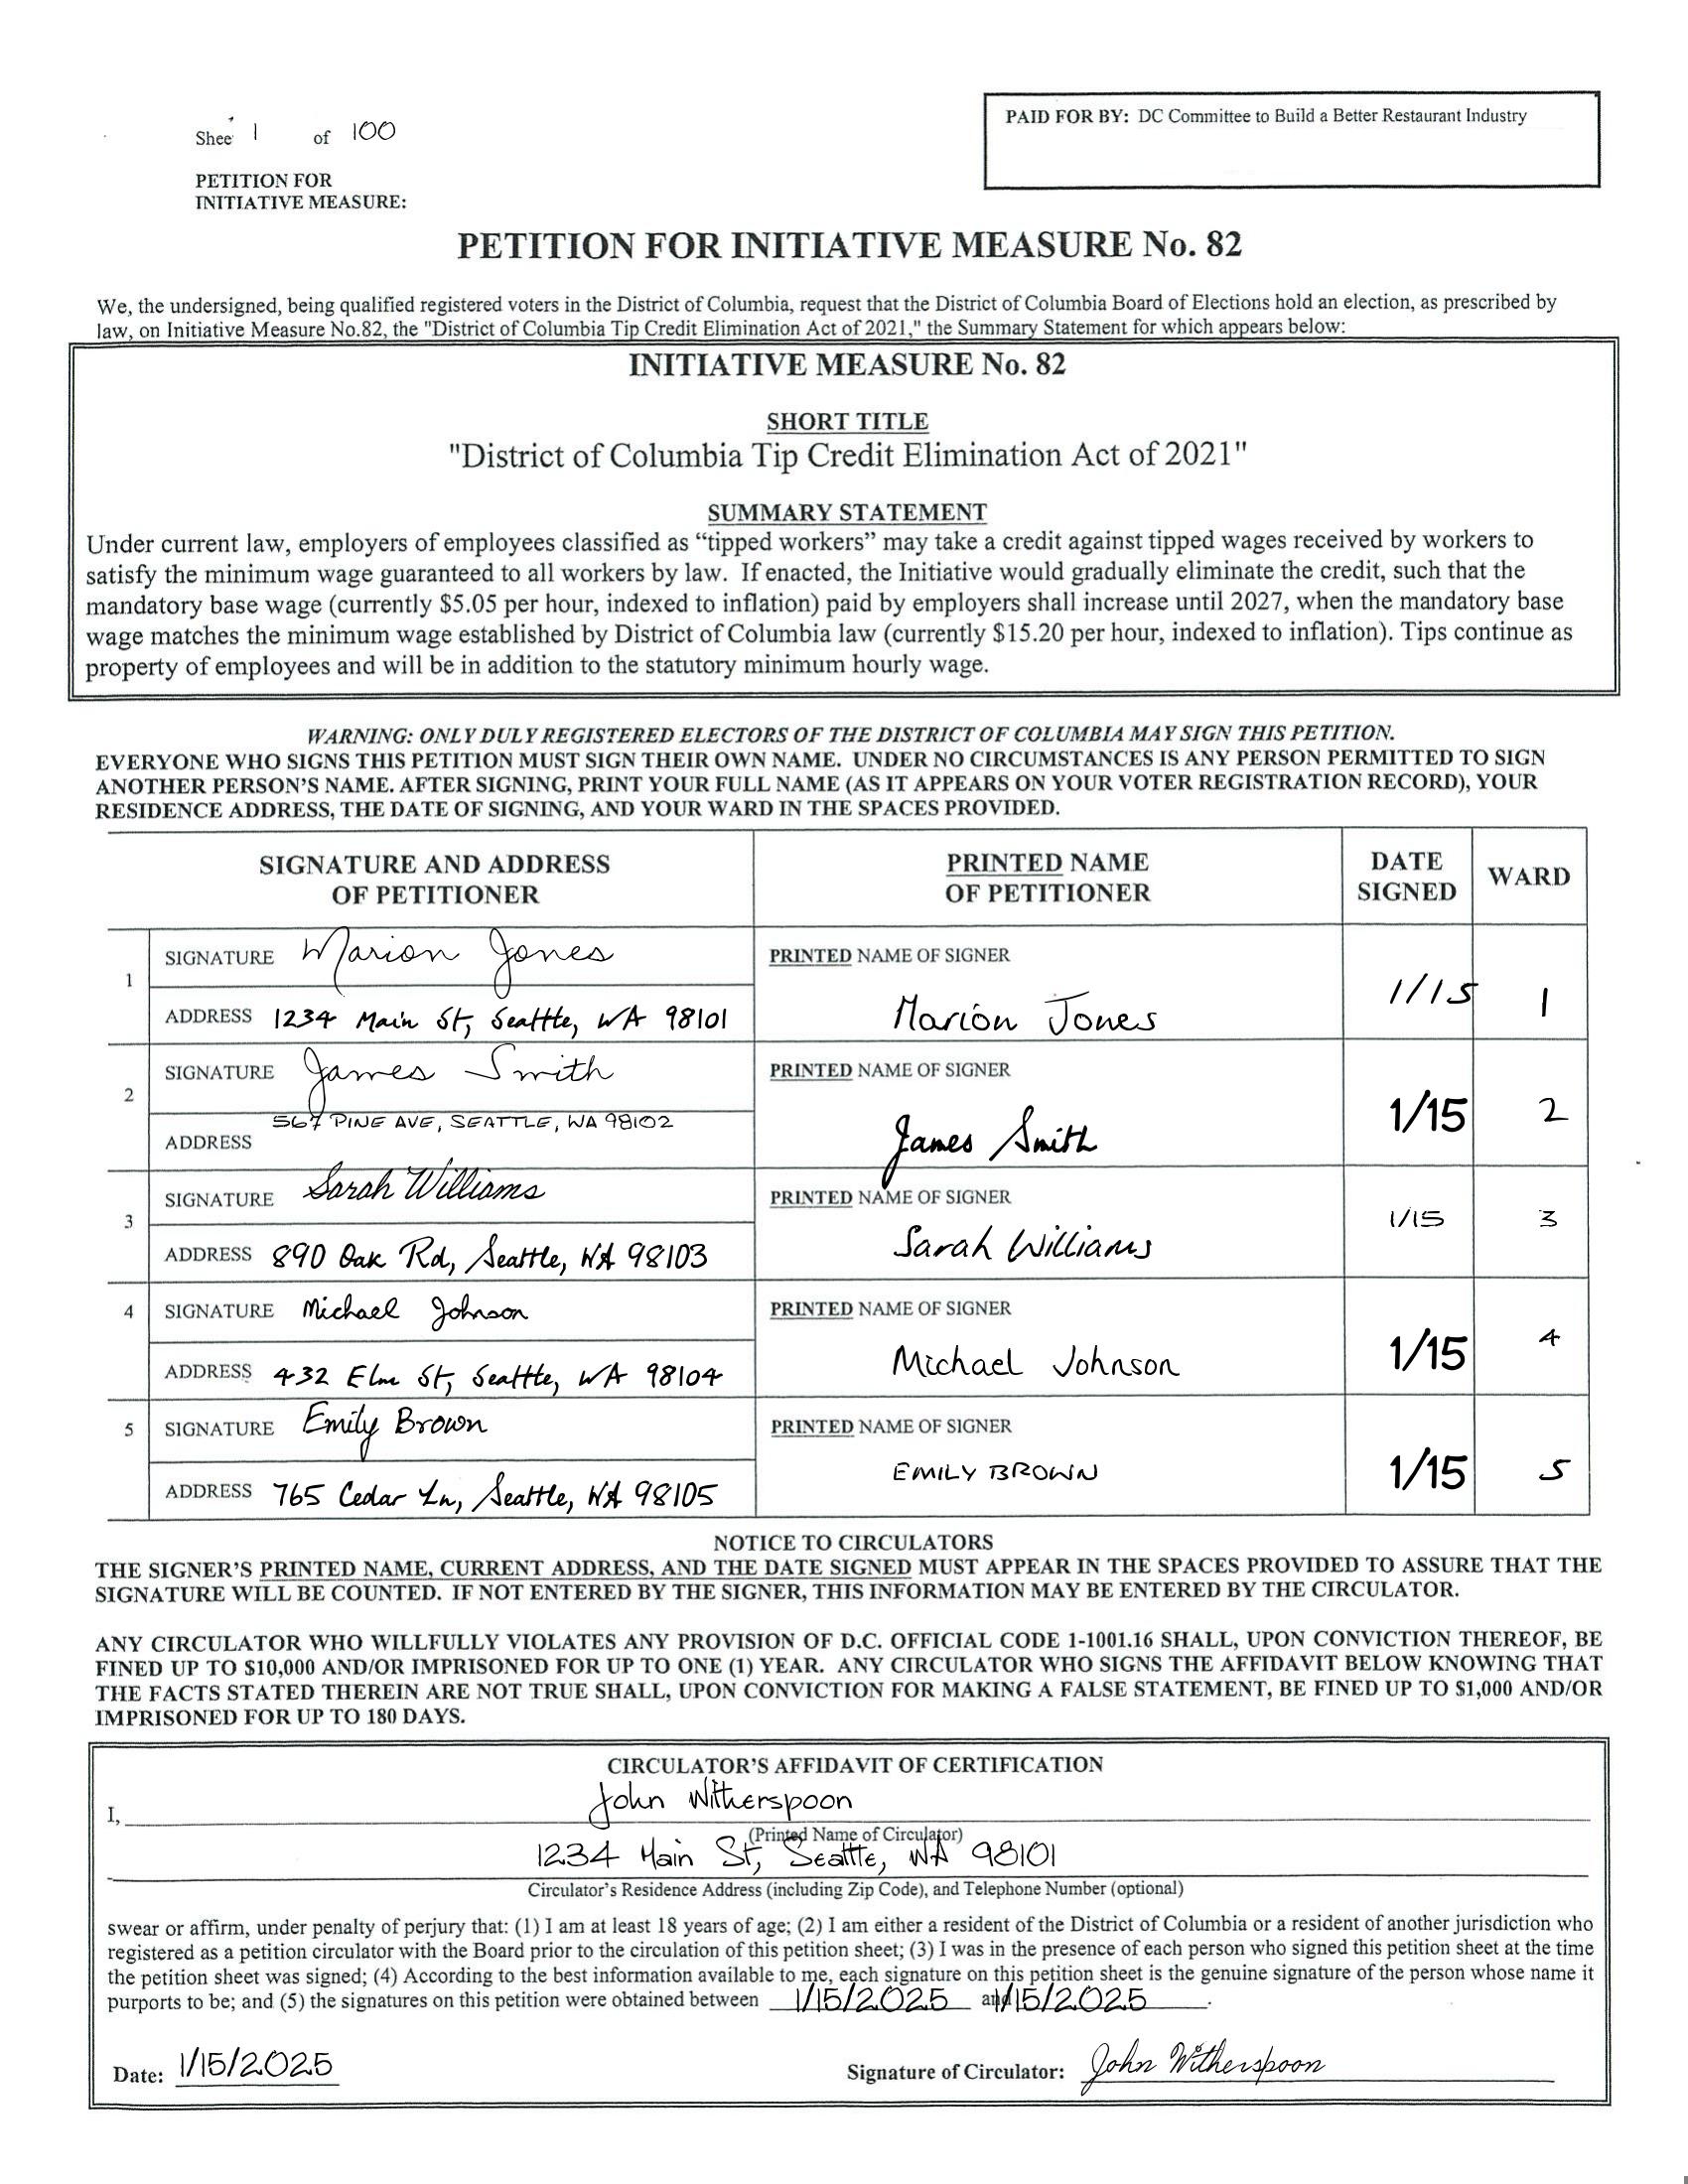 Shee 1 of 100
PAID FOR BY: DC Committee to Build a Better Restaurant Industry
PETITION FOR
INITIATIVE MEASURE:
PETITION FOR INITIATIVE MEASURE No. 82
We, the undersigned, being qualified registered voters in the District of Columbia, request that the District of Columbia Board of Elections hold an election, as prescribed by
law, on Initiative Measure No.82, the "District of Columbia Tip Credit Elimination Act of 2021," the Summary Statement for which appears below:
INITIATIVE MEASURE No. 82
SHORT TITLE
"District of Columbia Tip Credit Elimination Act of 2021"
SUMMARY STATEMENT
Under current law, employers of employees classified as “tipped workers” may take a credit against tipped wages received by workers to
satisfy the minimum wage guaranteed to all workers by law. If enacted, the Initiative would gradually eliminate the credit, such that the
mandatory base wage (currently $5.05 per hour, indexed to inflation) paid by employers shall increase until 2027, when the mandatory base
wage matches the minimum wage established by District of Columbia law (currently $15.20 per hour, indexed to inflation). Tips continue as
property of employees and will be in addition to the statutory minimum hourly wage.
WARNING: ONLY DULY REGISTERED ELECTORS OF THE DISTRICT OF COLUMBIA MAY SIGN THIS PETITION.
EVERYONE WHO SIGNS THIS PETITION MUST SIGN THEIR OWN NAME. UNDER NO CIRCUMSTANCES IS ANY PERSON PERMITTED TO SIGN
ANOTHER PERSON'S NAME. AFTER SIGNING, PRINT YOUR FULL NAME (AS IT APPEARS ON YOUR VOTER REGISTRATION RECORD), YOUR
RESIDENCE ADDRESS, THE DATE OF SIGNING, AND YOUR WARD IN THE SPACES PROVIDED.
SIGNATURE AND ADDRESS
OF PETITIONER
PRINTED NAME
OF PETITIONER
DATE
SIGNED
WARD
1
SIGNATURE Marion Jones
ADDRESS 1234 Main St, Seattle, WA 98101
PRINTED NAME OF SIGNER
Marion Jones
1/15
1
2
SIGNATURE James Smith
567 PINE AVE, SEATTLE, WA 98102
ADDRESS
PRINTED NAME OF SIGNER
James Smith
1/15
2
3
SIGNATURE Sarah Williams
ADDRESS 890 Oak Rd, Seattle, WA 98103
PRINTED NAME OF SIGNER
Sarah Williams
1/15
3
4
SIGNATURE Michael Johnson
ADDRESS 432 Elm St, Seattle, WA 98104
PRINTED NAME OF SIGNER
Michael Johnson
1/15
4
5
SIGNATURE Emily Brown
ADDRESS 765 Cedar Ln, Seattle, WA 98105
PRINTED NAME OF SIGNER
EMILY BROWN
1/15
5
NOTICE TO CIRCULATORS
THE SIGNER'S PRINTED NAME, CURRENT ADDRESS, AND THE DATE SIGNED MUST APPEAR IN THE SPACES PROVIDED TO ASSURE THAT THE
SIGNATURE WILL BE COUNTED. IF NOT ENTERED BY THE SIGNER, THIS INFORMATION MAY BE ENTERED BY THE CIRCULATOR.
ANY CIRCULATOR WHO WILLFULLY VIOLATES ANY PROVISION OF D.C. OFFICIAL CODE 1-1001.16 SHALL, UPON CONVICTION THEREOF, BE
FINED UP TO $10,000 AND/OR IMPRISONED FOR UP TO ONE (1) YEAR. ANY CIRCULATOR WHO SIGNS THE AFFIDAVIT BELOW KNOWING THAT
THE FACTS STATED THEREIN ARE NOT TRUE SHALL, UPON CONVICTION FOR MAKING A FALSE STATEMENT, BE FINED UP TO $1,000 AND/OR
IMPRISONED FOR UP TO 180 DAYS.
CIRCULATOR'S AFFIDAVIT OF CERTIFICATION
I, John Witherspoon
(Printed Name of Circulator)
1234 Main St, Seattle, WA 98101
Circulator's Residence Address (including Zip Code), and Telephone Number (optional)
swear or affirm, under penalty of perjury that: (1) I am at least 18 years of age; (2) I am either a resident of the District of Columbia or a resident of another jurisdiction who
registered as a petition circulator with the Board prior to the circulation of this petition sheet; (3) I was in the presence of each person who signed this petition sheet at the time
the petition sheet was signed; (4) According to the best information available to me, each signature on this petition sheet is the genuine signature of the person whose name it
purports to be; and (5) the signatures on this petition were obtained between 1/15/2025 and 1/15/2025.
Date: 1/15/2025
Signature of Circulator: John Witherspoon